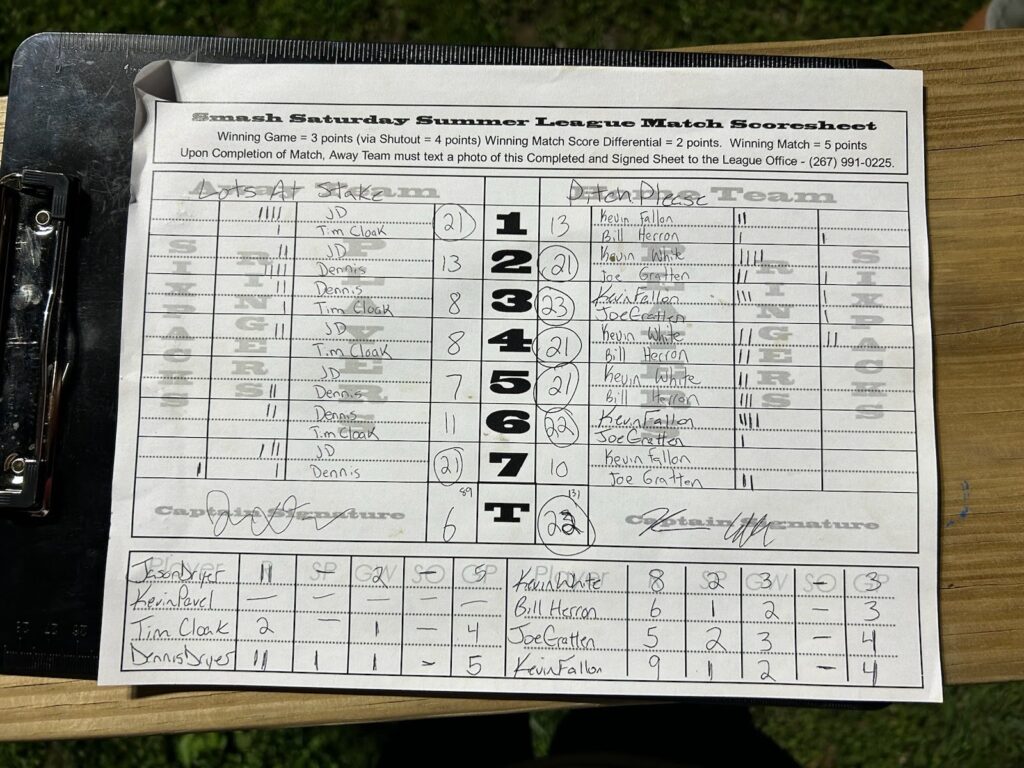 Smash Saturday Summer League Match Scoresheet
Winning Game = 3 points (via Shutout = 4 points) Winning Match Score Differential = 2 points. Winning Match = 5 points
Upon Completion of Match, Away Team must text a photo of this Completed and Signed Sheet to the League Office - (267) 991-0225.
Away Team Lots At Stake Home Team Pitch Please
SIX PACKS RINGERS PLAYERS PLAYERS RINGERS SIX PACKS
IIII JD 21 1 13 Kevin Fallon II
I Tim Cloak Bill Herron I I
II JD 13 2 21 Kevin White IIII
IIII Dennis Joe Gratten II I
II Dennis 8 3 23 Kevin Fallon III I
I Tim Cloak Joe Gratten I
II JD 8 4 21 Kevin White II II
Tim Cloak Bill Herron II
JD 7 5 21 Kevin White II
II Dennis Bill Herron III
II Dennis 11 6 22 Kevin Fallon IIII
Tim Cloak Joe Gratten I
IIII JD 21 7 10 Kevin Fallon
I I Dennis Joe Gratten II
Captain Signature 89 6 T 131 Captain Signature
Player R SP GW SO GP Player R SP GW SO GP
Jason Dryer 11 2 - 5 Kevin White 8 2 3 - 3
Kevin Pavel - - - - - Bill Herron 6 1 2 - 3
Tim Cloak 2 - 1 - 4 Joe Gratten 5 2 3 - 4
Dennis Dryer 11 1 1 - 5 Kevin Fallon 9 1 2 - 4